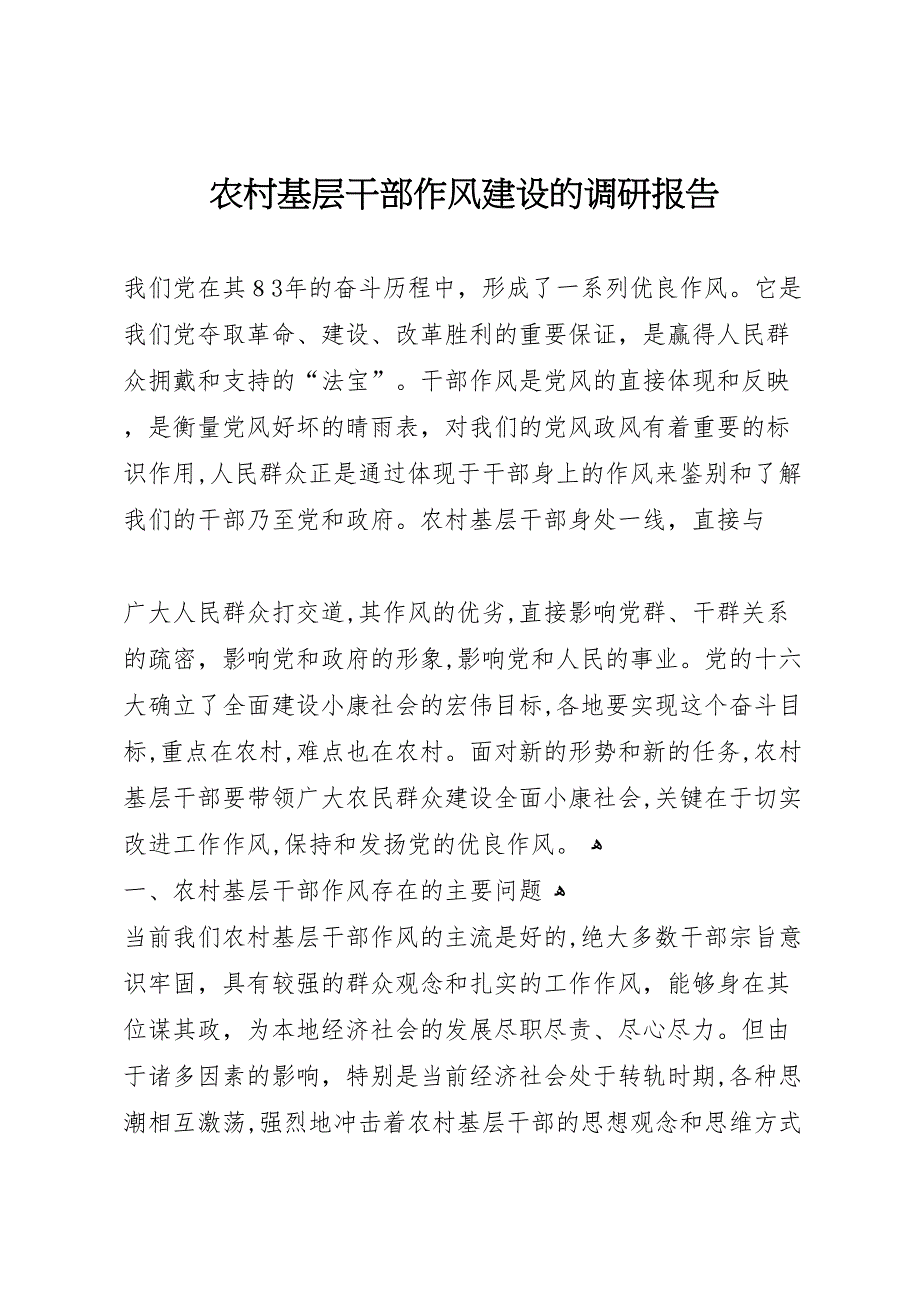 农村基层干部作风建设的调研报告
我们党在其83年的奋斗历程中，形成了一系列优良作风。它是
我们党夺取革命、建设、改革胜利的重要保证，是赢得人民群
众拥戴和支持的“法宝”。干部作风是党风的直接体现和反映
，是衡量党风好坏的晴雨表，对我们的党风政风有着重要的标
识作用,人民群众正是通过体现于干部身上的作风来鉴别和了解
我们的干部乃至党和政府。农村基层干部身处一线，直接与
广大人民群众打交道,其作风的优劣,直接影响党群、干群关系
的疏密，影响党和政府的形象,影响党和人民的事业。党的十六
大确立了全面建设小康社会的宏伟目标,各地要实现这个奋斗目
标,重点在农村,难点也在农村。面对新的形势和新的任务,农村
基层干部要带领广大农民群众建设全面小康社会,关键在于切实
改进工作作风,保持和发扬党的优良作风。 ﻫ
一、农村基层干部作风存在的主要问题 ﻫ
当前我们农村基层干部作风的主流是好的,绝大多数干部宗旨意
识牢固，具有较强的群众观念和扎实的工作作风，能够身在其
位谋其政，为本地经济社会的发展尽职尽责、尽心尽力。但由
于诸多因素的影响，特别是当前经济社会处于转轨时期,各种思
潮相互激荡,强烈地冲击着农村基层干部的思想观念和思维方式